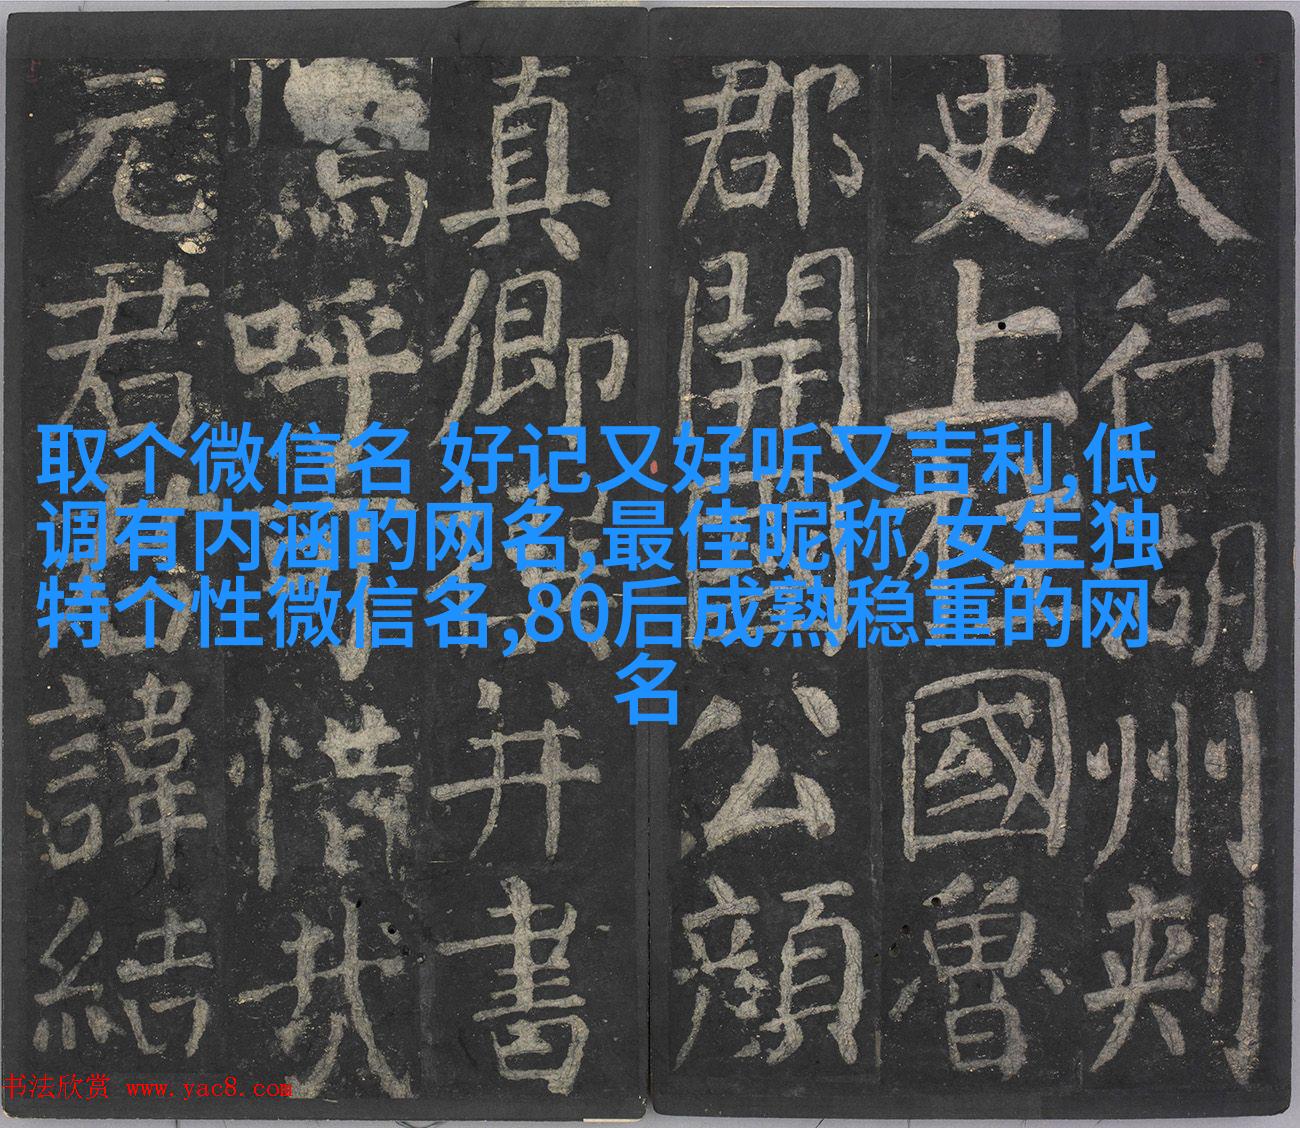 取个微信名 好记又好听又吉利,低
调有内涵的网名,最佳昵称,女生独
特个性微信名,80后成熟稳重的网
名
夫行湖州刺
史上柱國魯
郡開國公顏
真卿撰并書
嗚呼可惜哉
元君君諱結
书法欣赏 www.yac8.com